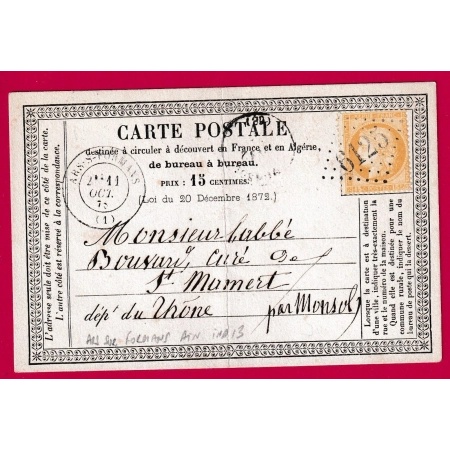 CARTE POSTALE
destinée à circuler à découvert en France et en Algérie,
de bureau à bureau.
PRIX : 15 CENTIMES.
(Loi du 20 Décembre 1872.)
ARS-S-FORMANS
11
OCT.
(1)
6125
Monsieur l'abbé
Bouvard, curé de
St Mamert
dépt du Rhône par Monsols
L'adresse seule doit être mise de ce côté de la carte.
L'autre côté est réservé à la correspondance.
Lorsque la carte est à destination
d'une ville, indiquer très-exactement la
rue et le numéro de la maison.
Quand elle est destinée pour une
commune rurale, indiquer le nom du
bureau de poste qui la dessert.
ARS sur FORMANS AIN IND 13